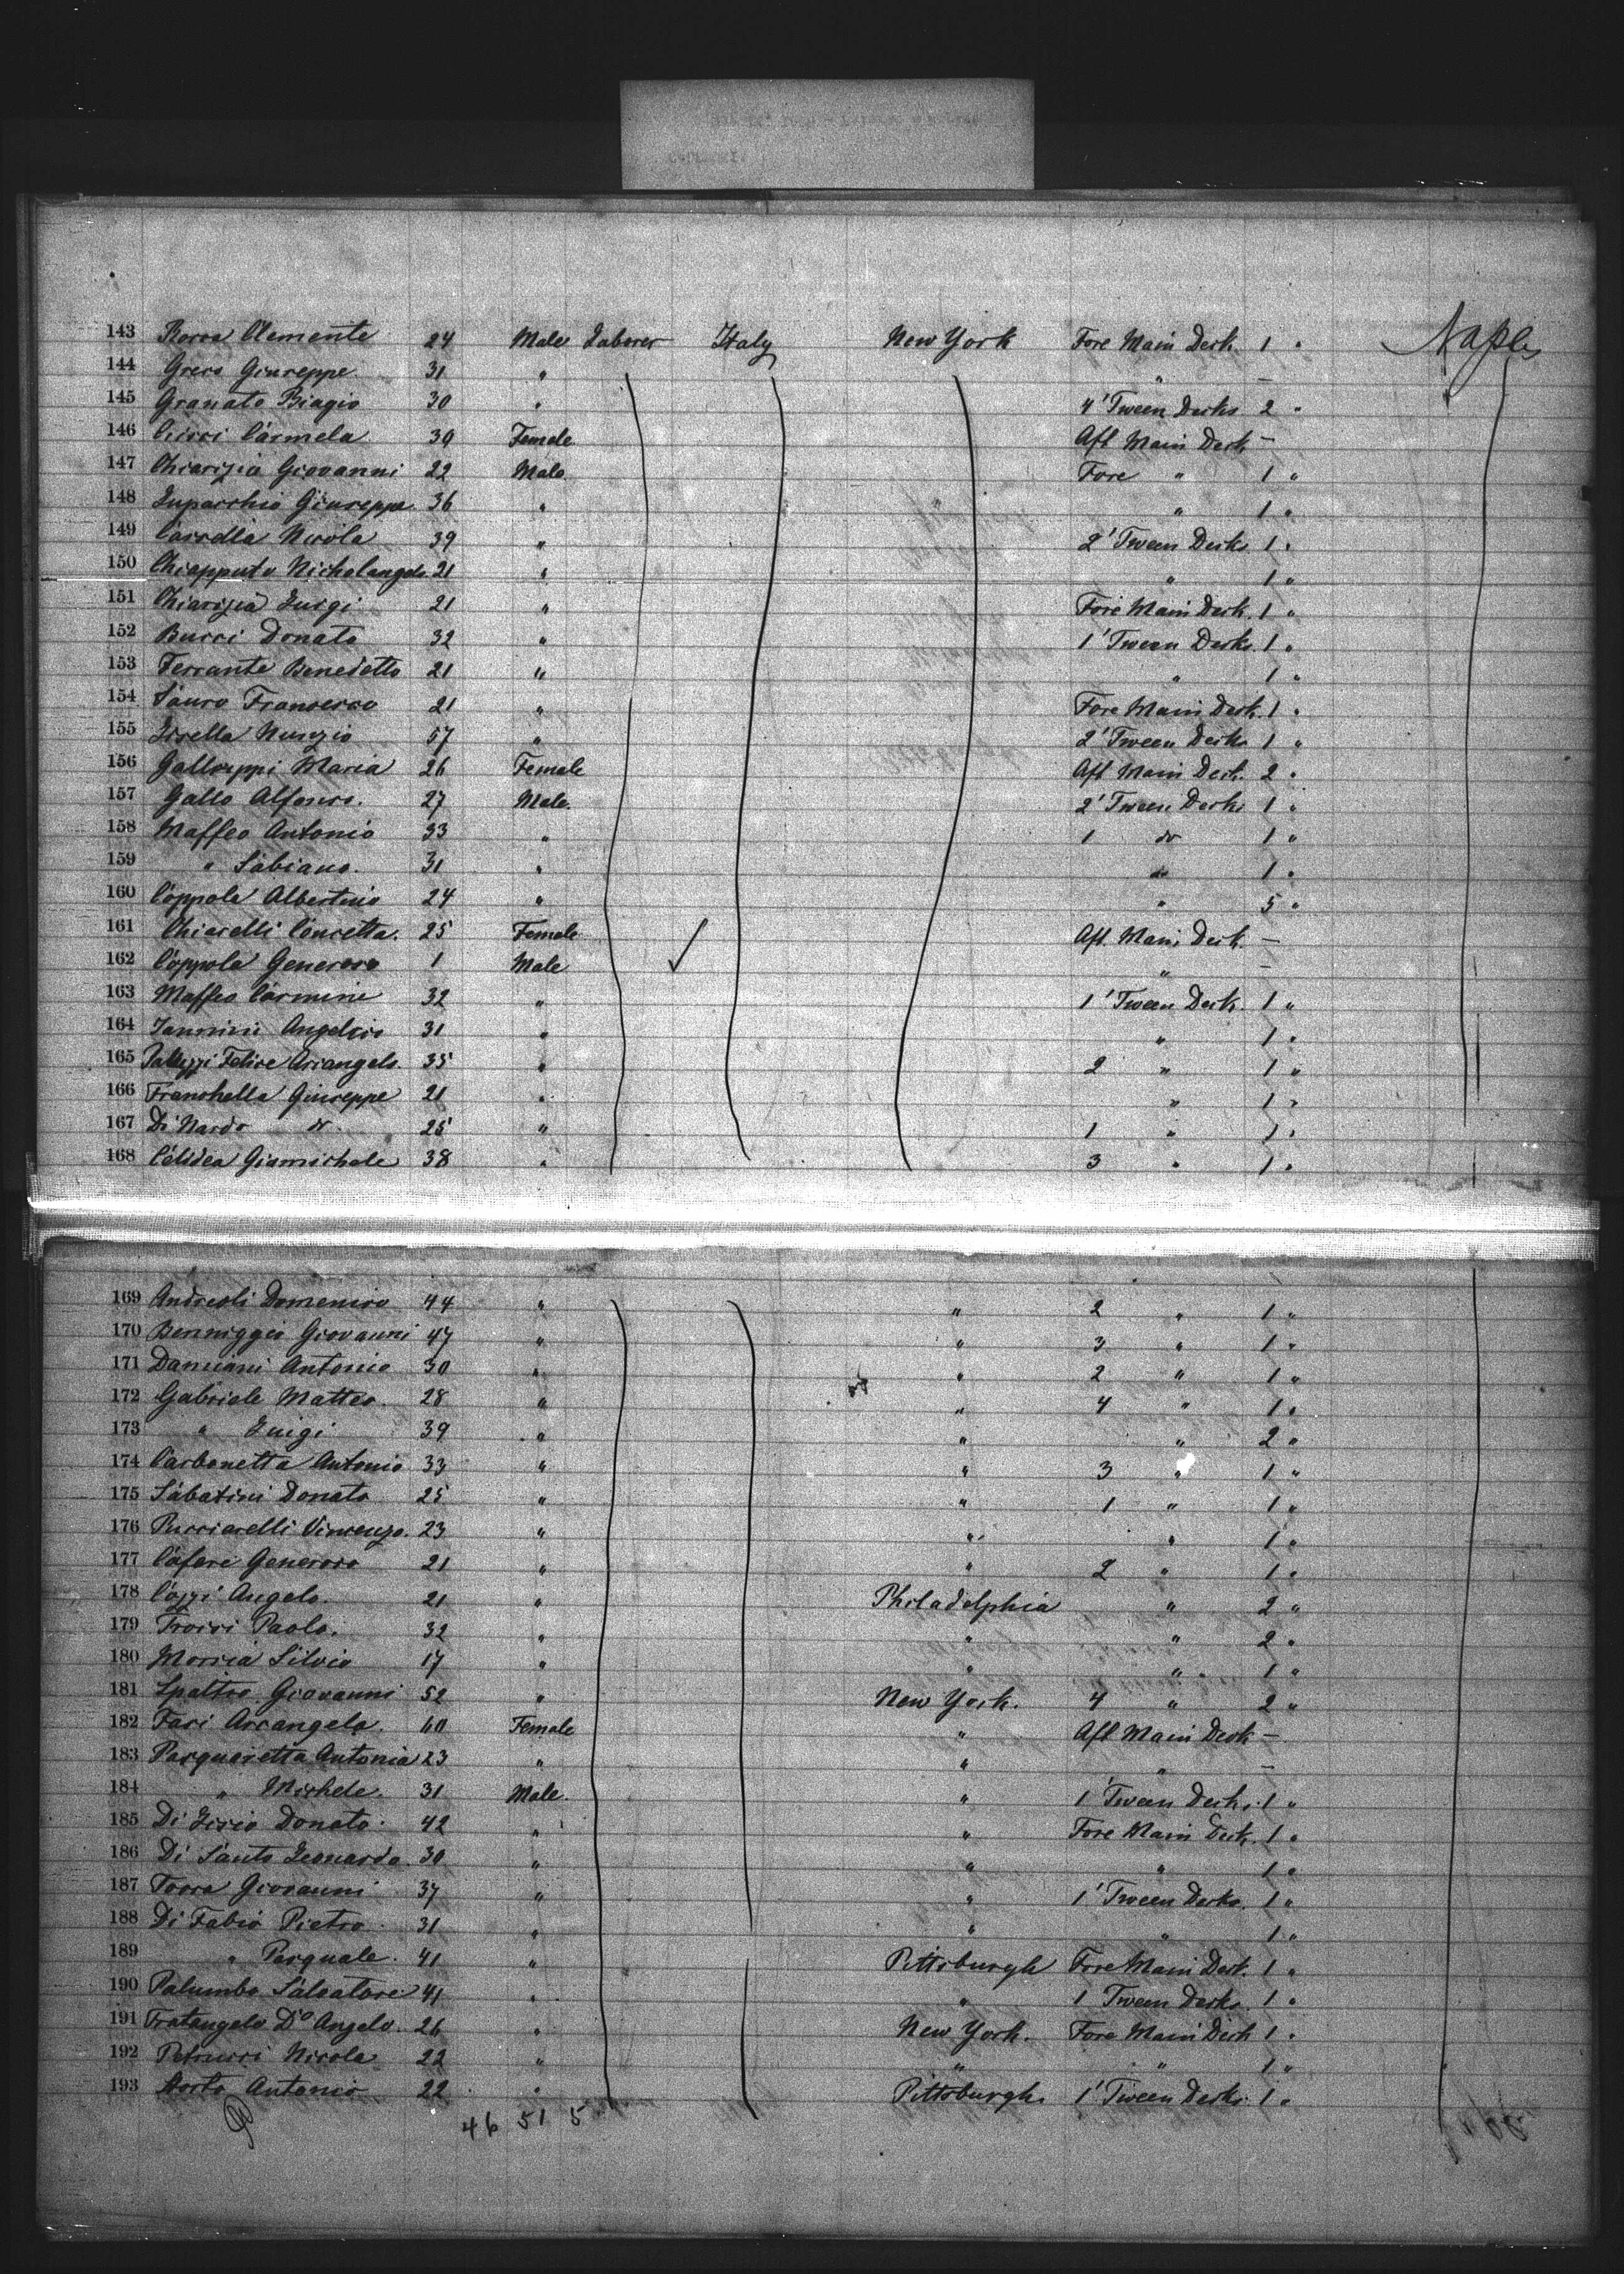 143 Borra Clemente 24 Male Laborer Italy New York Fore Main Deck 1 " Naples
144 Greco Giuseppe 31 " " —
145 Granato Biagio 30 " 4' Tween Decks 2 "
146 Ciucci Carmela 39 Female Aft Main Deck —
147 Chiarizia Giovanni 22 Male Fore " 1 "
148 Lupacchio Giuseppe 36 " " 1 "
149 Casodla Nicola 39 " 2' Tween Decks 1 "
150 Chiapputo Nicholangelo 21 " " 1 "
151 Chiarizia Luigi 21 " Fore Main Deck 1 "
152 Bucci Donato 32 " 1' Tween Decks 1 "
153 Ferrante Benedetto 21 " " 1 "
154 Sauro Francesco 21 " Fore Main Deck 1 "
155 Lisella Nunzio 57 " 2' Tween Decks 1 "
156 Galluppi Maria 26 Female Aft Main Deck 2 "
157 Gallo Alfonso. 27 Male. 2' Tween Decks 1 "
158 Maffeo Antonio 33 " 1 do 1 "
159 " Sabiano. 31 " do 1 "
160 Coppola Albertino 24 " " 5 "
161 Chiarelli Concetta. 25 Female Aft. Main Deck —
162 Coppola Generoso 1 Male " —
163 Maffeo Carmine 32 " 1' Tween Deck. 1 "
164 Iannini Angelico 31 " " 1 "
165 Felice Arcangelo. 35 " 2 " 1 "
166 Franchella Giuseppe 21 " " 1 "
167 Di Nardo do. 25 " 1 " 1 "
168 Celidea Giamichele 38 " 3 " 1 "
169 Andreoli Domenico 44 " " 2 " 1 "
170 Benniggio Giovanni 47 " " 3 " 1 "
171 Damiani Antonio 30 " " 2 " 1 "
172 Gabriele Matteo. 28 " " 4 " 1 "
173 " Luigi 39 " " " 2 "
174 Carbonetta Antonio 33 " " 3 " 1 "
175 Sabatini Donato 25 " " 1 " 1 "
176 Pucciarelli Vincenzo. 23 " " " 1 "
177 Cafare Generoso 21 " " 2 " 1 "
178 Cozzi Angelo. 21 " Philadelphia " 2 "
179 Troisi Paolo. 32 " " " 2 "
180 Morria Silvio 17 " " " 1 "
181 Spaltro Giovanni 52 " New York. 4 " 2 "
182 Fasi Arcangela. 60 Female " Aft Main Deck —
183 Pasquaretta Antonia 23 " " " —
184 " Michele. 31 Male. " 1' Tween Decks. 1 "
185 Di Lisio Donato. 42 " " Fore Main Deck. 1 "
186 Di Santo Leonardo. 30 " " " 1 "
187 Torra Giovanni 37 " " 1' Tween Decks. 1 "
188 Di Fabio Pietro. 31 " " " 1 "
189 " Pasquale. 41 " Pittsburgh Fore Main Deck. 1 "
190 Palumbo Salvatore 41 " " 1 Tween Decks. 1 "
191 Fratangelo D'o Angelo. 26 " New York. Fore Main Deck 1 "
192 Petrucci Nicola 22 " " " 1 "
193 Antonio 22 " Pittsburgh. 1' Tween Decks. 1 "
46 51 5